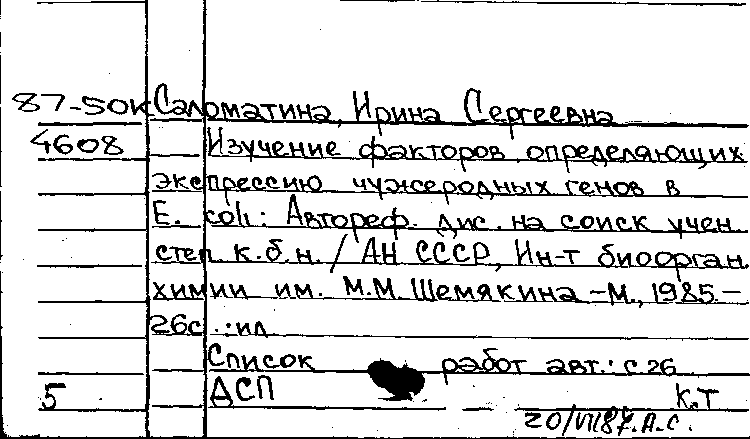 87-50К Саломатина, Ирина Сергеевна
4608 Изучение факторов, определяющих
экспрессию чужеродных генов в
E. coli: Автореф. дис. на соиск учен.
степ к.б.н. / АН СССР, Ин-т биоорган.
химии им. М.М. Шемякина -М., 1985.-
26с.:ил
Список работ авт.: с 26
5 ДСП К.Т
20/VII87. А.С.